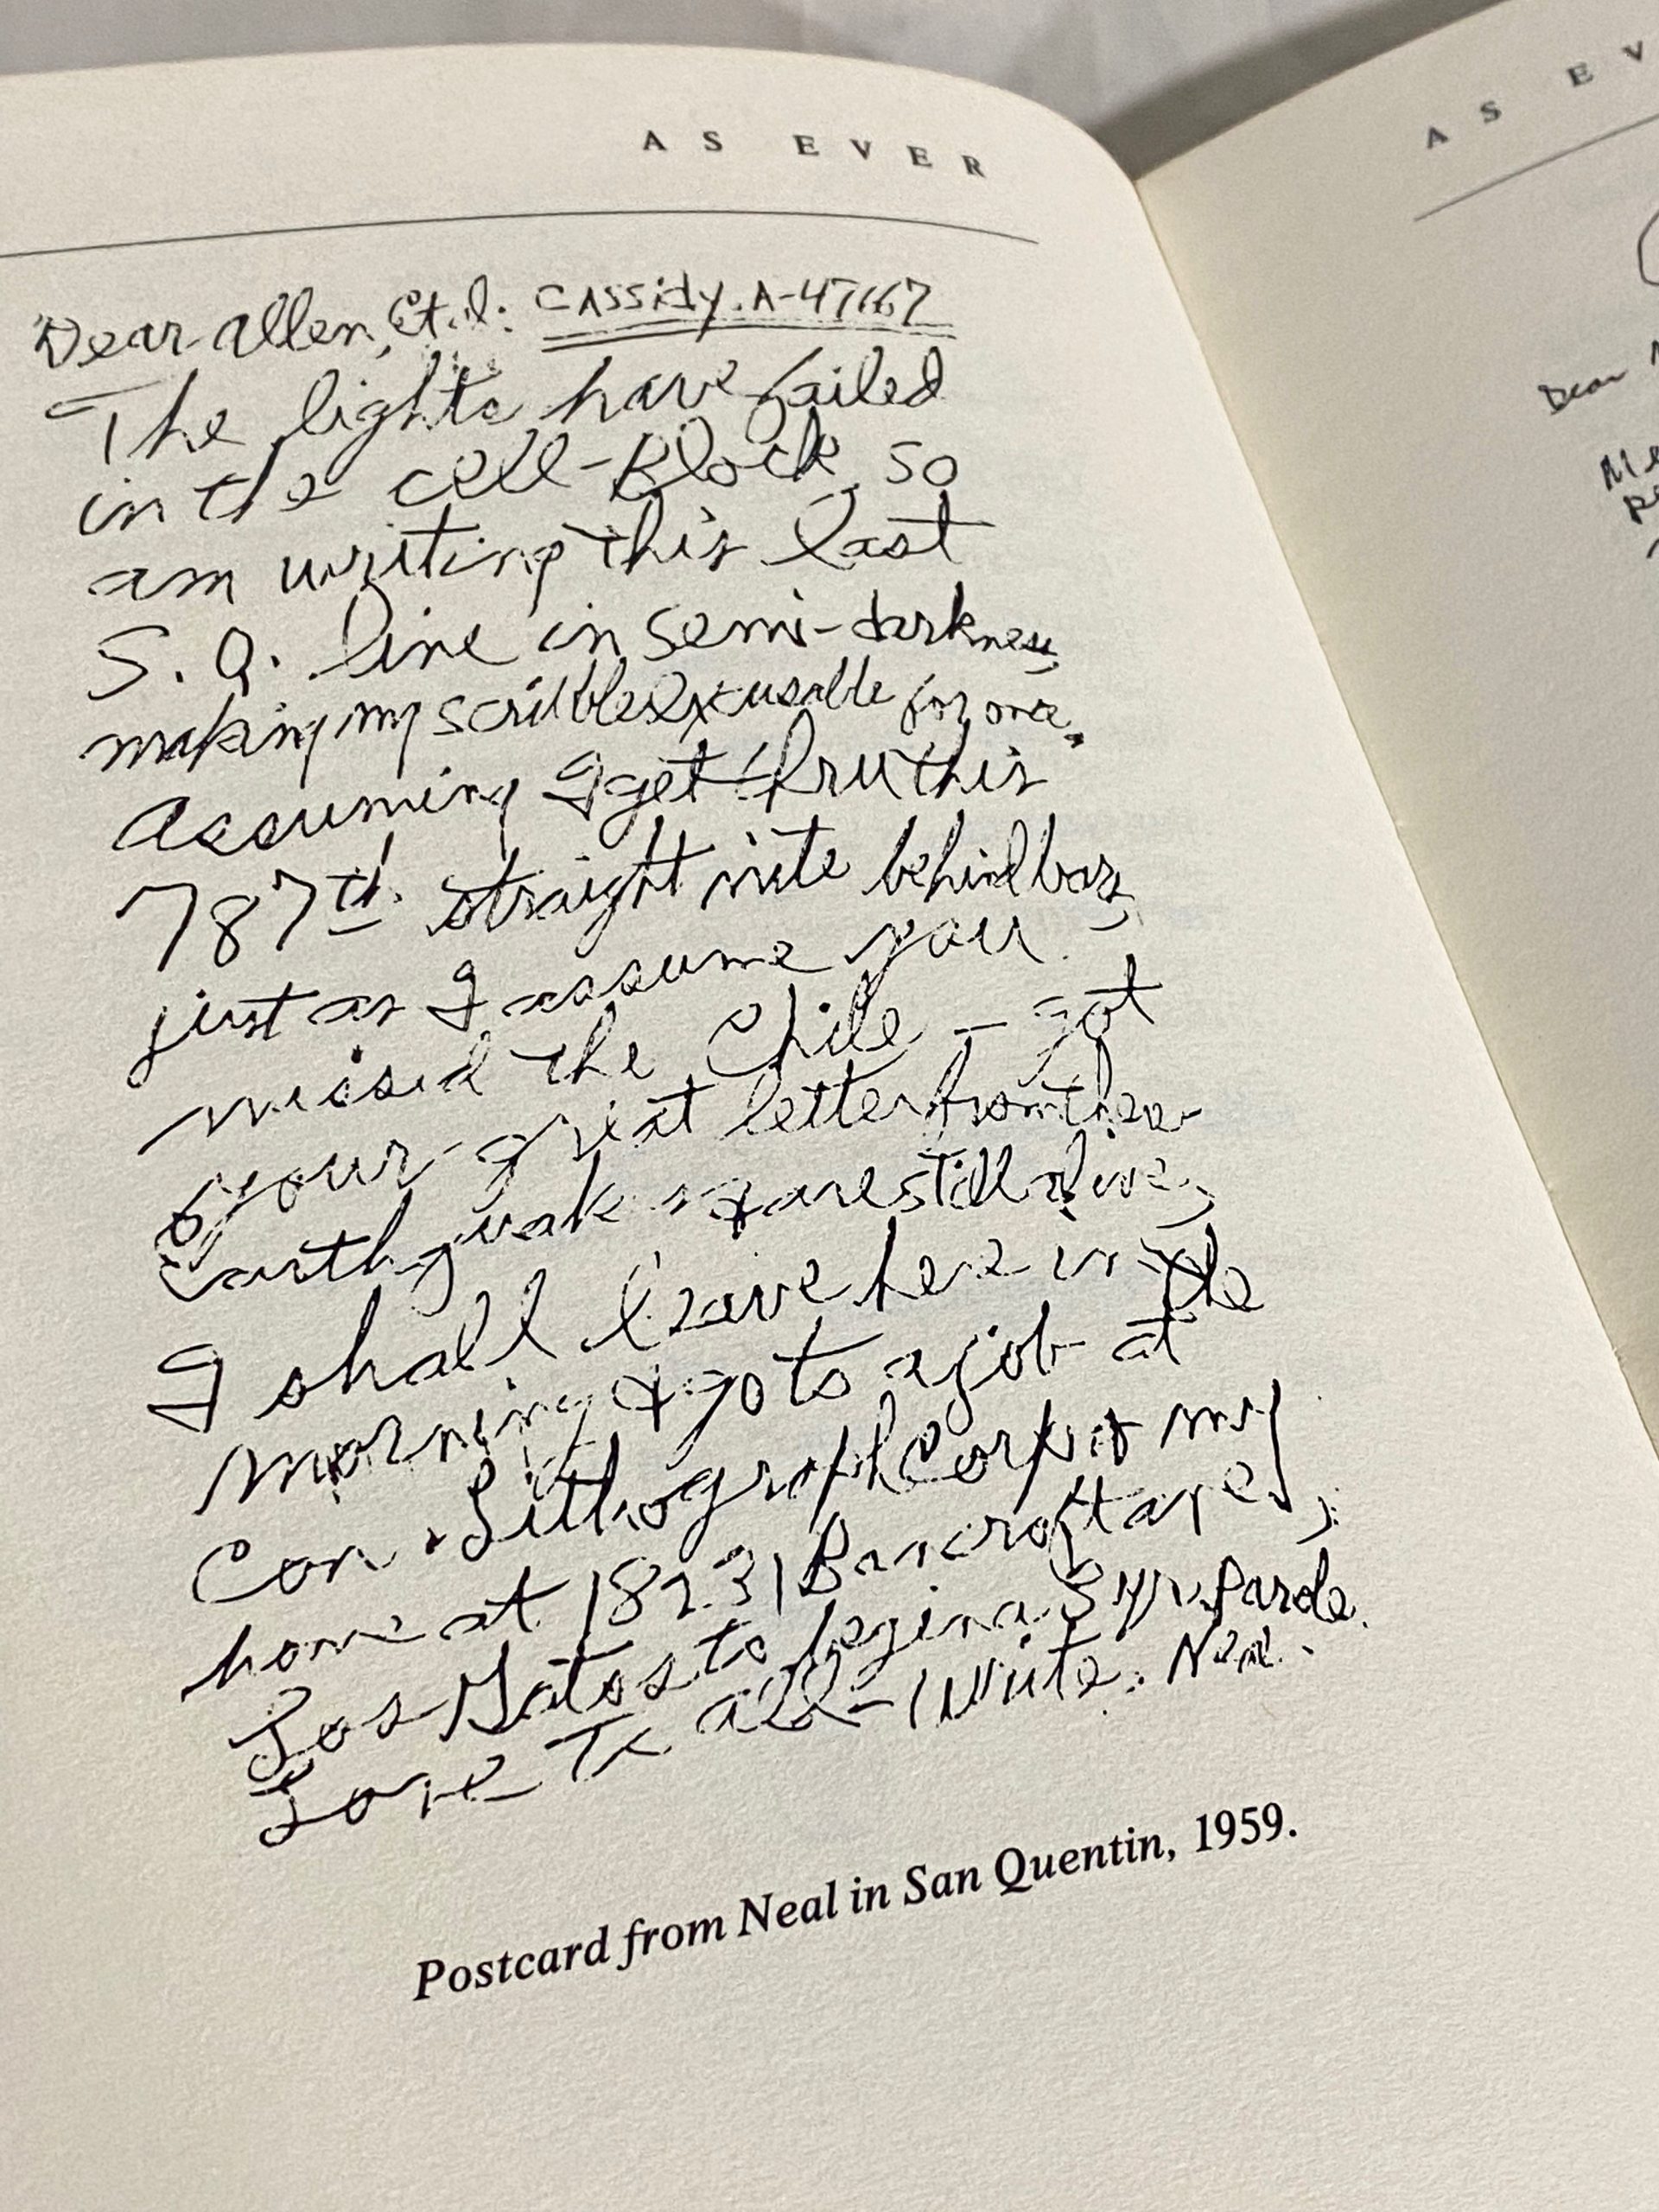 AS EVER
Dear Allen, Et. al: CASSidy. A-47167
The lights have failed
in the cell-Block, so
am writing this last
S. Q. line in semi-darkness,
making my scribbles excusable for once.
Assuming I get thru this
787th. straight nite behind bars,
just as I assume you
missed the Chile - got
your great letter from there
Earthquake & are still alive,
I shall leave here in the
morning & go to a job at
Con. Lithograph Corp. & my
home at 18231 Bancroft ave,
Los Gatos to begin a 3 yr. Parole.
Love To all - Write. Neal.
Postcard from Neal in San Quentin, 1959.
AS EV
Dear